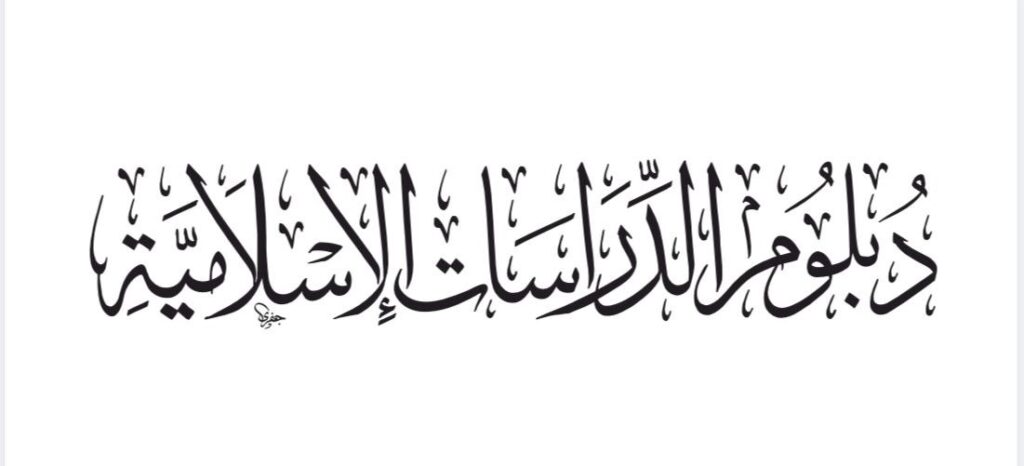 دُبلُوم الدِّرَاسَات الإِسْلَامَيَّةِ
جعفري